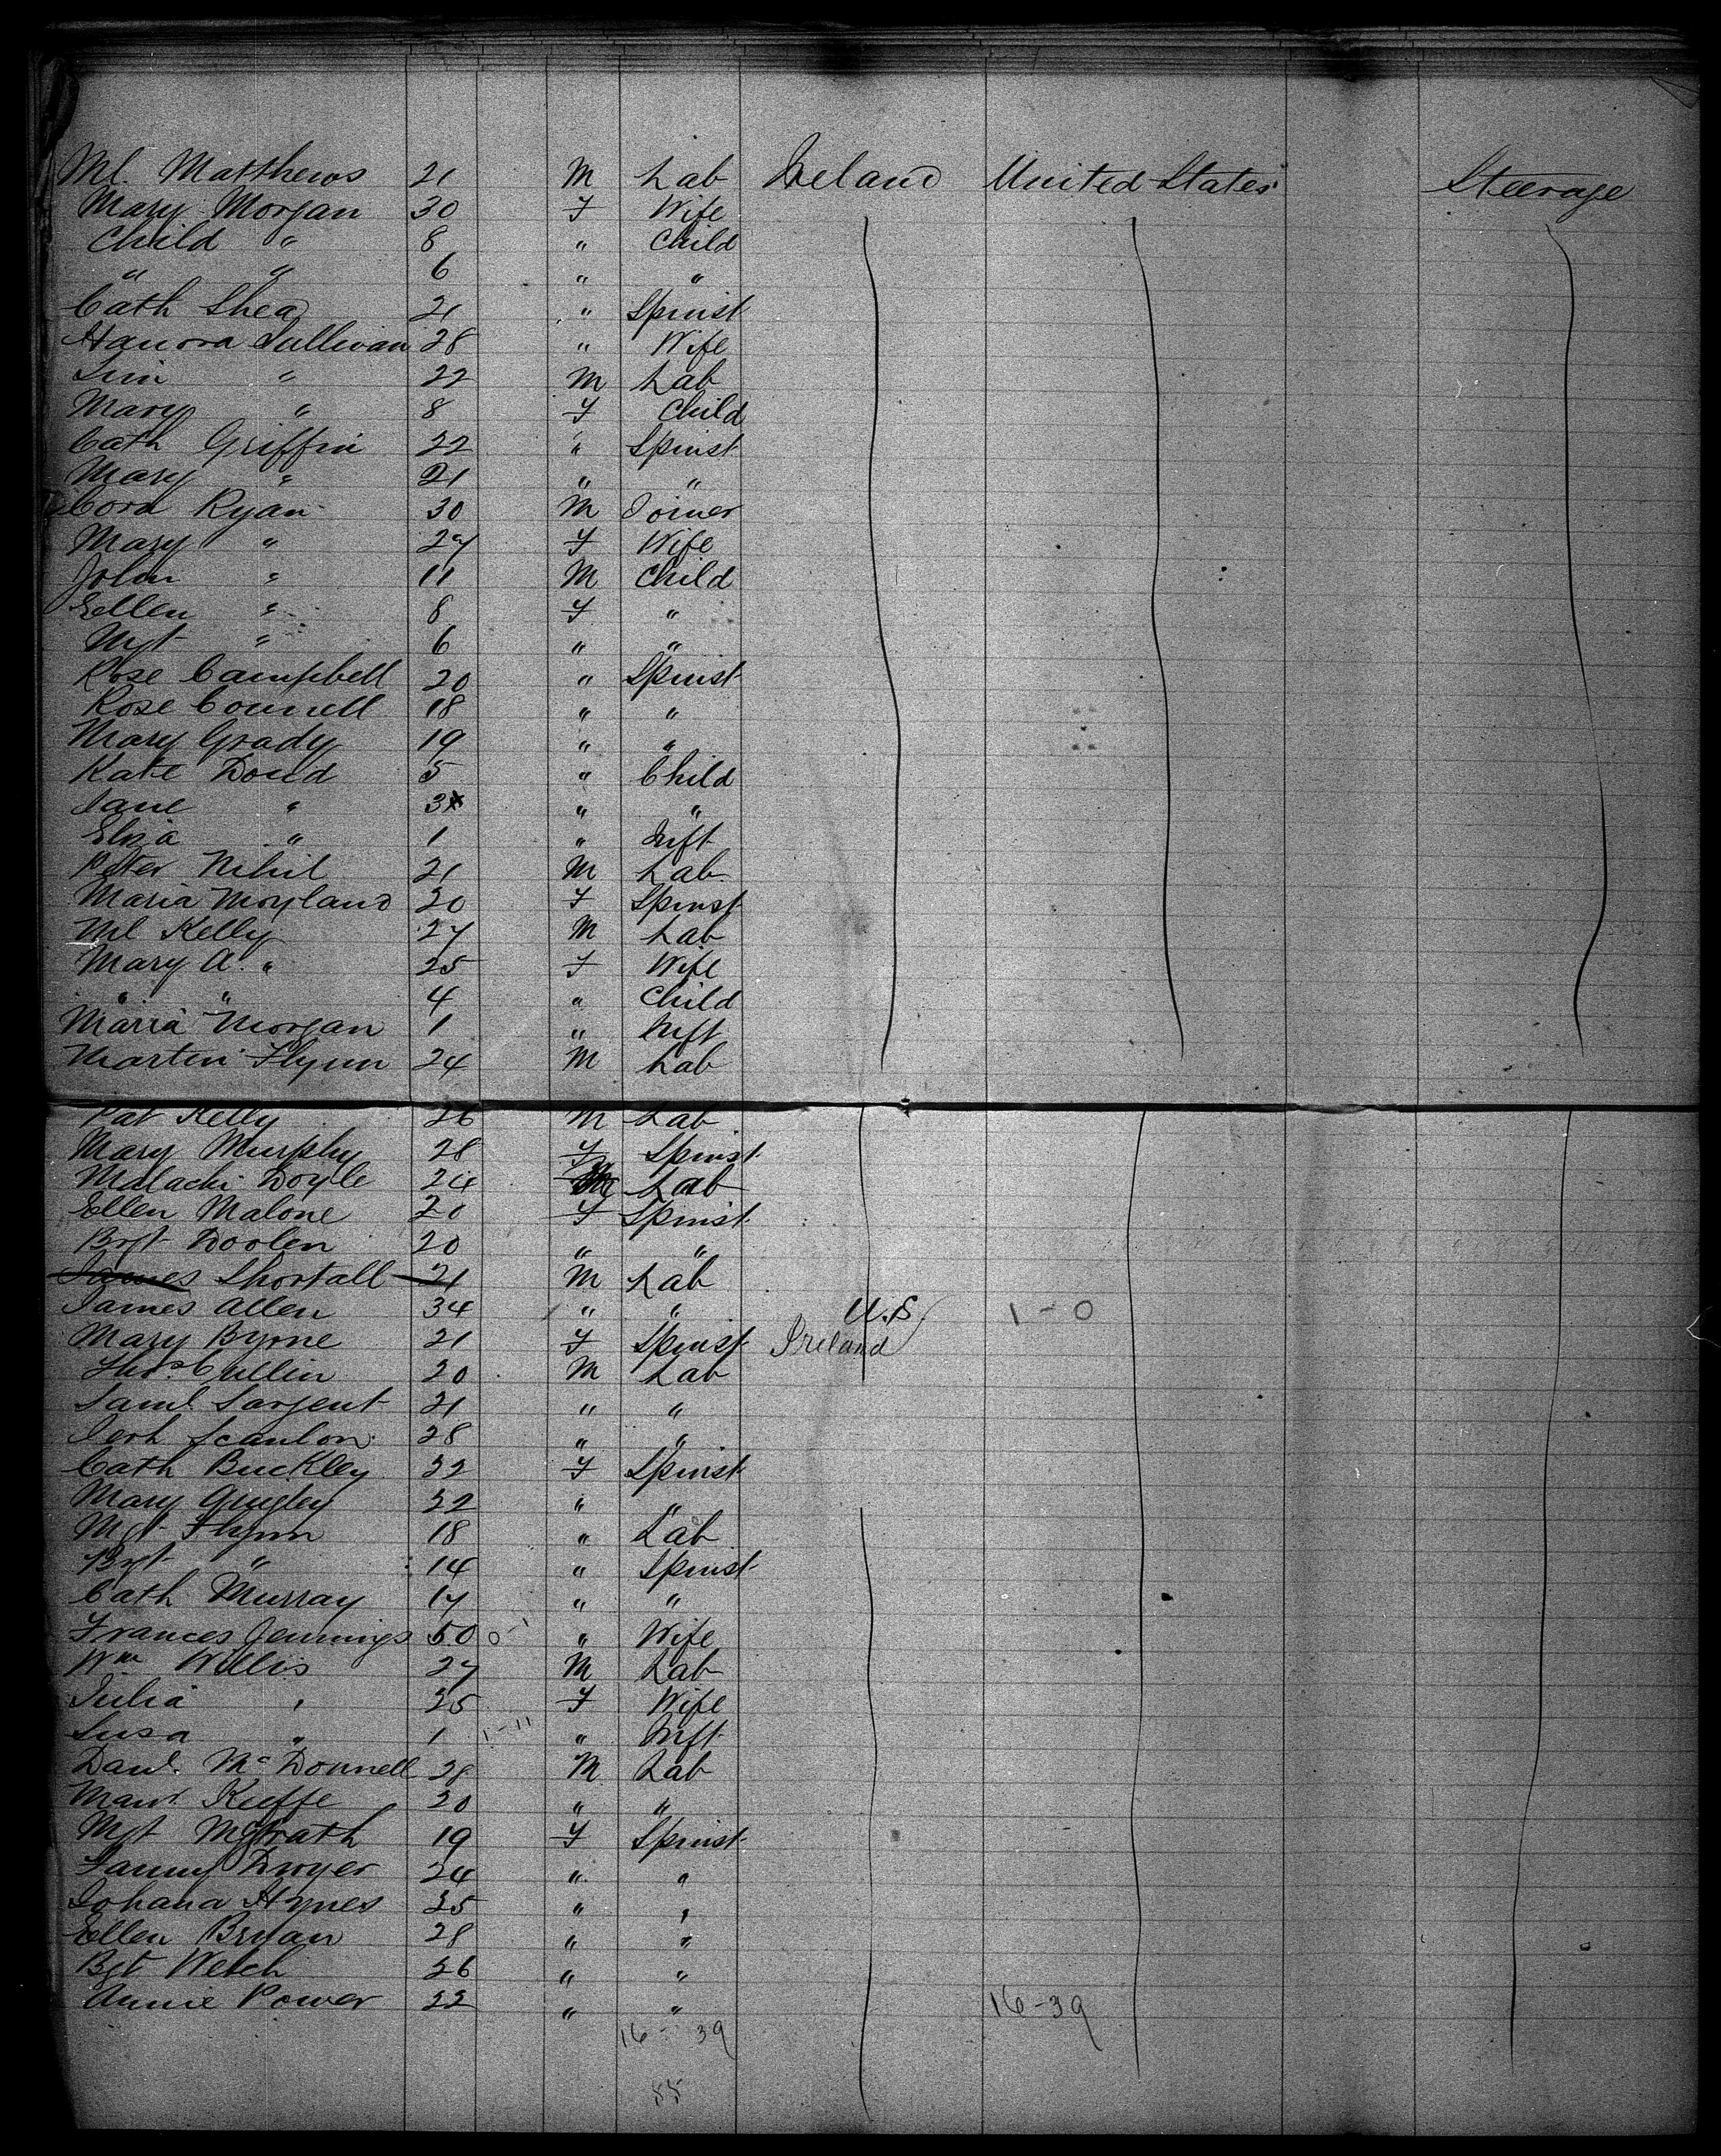 Ml. Matthews 21 M Lab Ireland United States Steerage
Mary Morgan 30 F Wife
Child " 8 " Child
" " 6 " "
Cath Shea 21 " Spinst
Hanora Sullivan 28 " Wife
" 22 M Lab
Mary " 8 F Child
Cath Griffin 22 " Spinst
Mary " 21 " "
Ryan 30 M Joiner
Mary " 27 F Wife
John " 11 M Child
Ellen " 8 F "
Mgt " 6 " "
Rose Campbell 20 " Spinst
Rose Connell 18 " "
Mary Grady 19 " "
Kate Doud 5 " Child
Jane " 3 " "
Eliza " 1 " Inft
Peter Nihil 21 M Lab
Maria Moyland 20 F Spinst
Ml Kelly 27 M Lab
Mary A. " 25 F Wife
" " 4 " Child
Maria Morgan 1 " Inft
Martin Flynn 24 M Lab
Pat Kelly 26 M Lab
Mary Murphy 28 F Spinst
Malachi Doyle 24 M Lab
Ellen Malone 20 F Spinst
Bgt Doolen 20 " "
James Shortall 21 M Lab
James Allen 34 " " U.S 1-0
Mary Byrne 21 F Spinst Ireland
Thos. Cullin 20 M Lab
Saml. Sargent 21 " "
Jerh Scanlon 28 " "
Cath Buckley 22 F Spinst
Mary Quigley 22 " "
Mgt Flynn 18 " Lab
Bgt " 14 " Spinst
Cath Murray 17 " "
Frances Jennings 50 0-1 " Wife
Wm Willis 27 M Lab
Julia " 25 F Wife
Susa " 1 1-11 " Inft
Danl. McDonnell 28 M Lab
Keffe 20 " "
Mgt McGrath 19 F Spinst
Fanny Dwyer 24 " "
Johana Hynes 25 " "
Ellen Bryan 28 " "
Bgt Welch 26 " "
Annie Power 22 " " 16-39
16-39
55